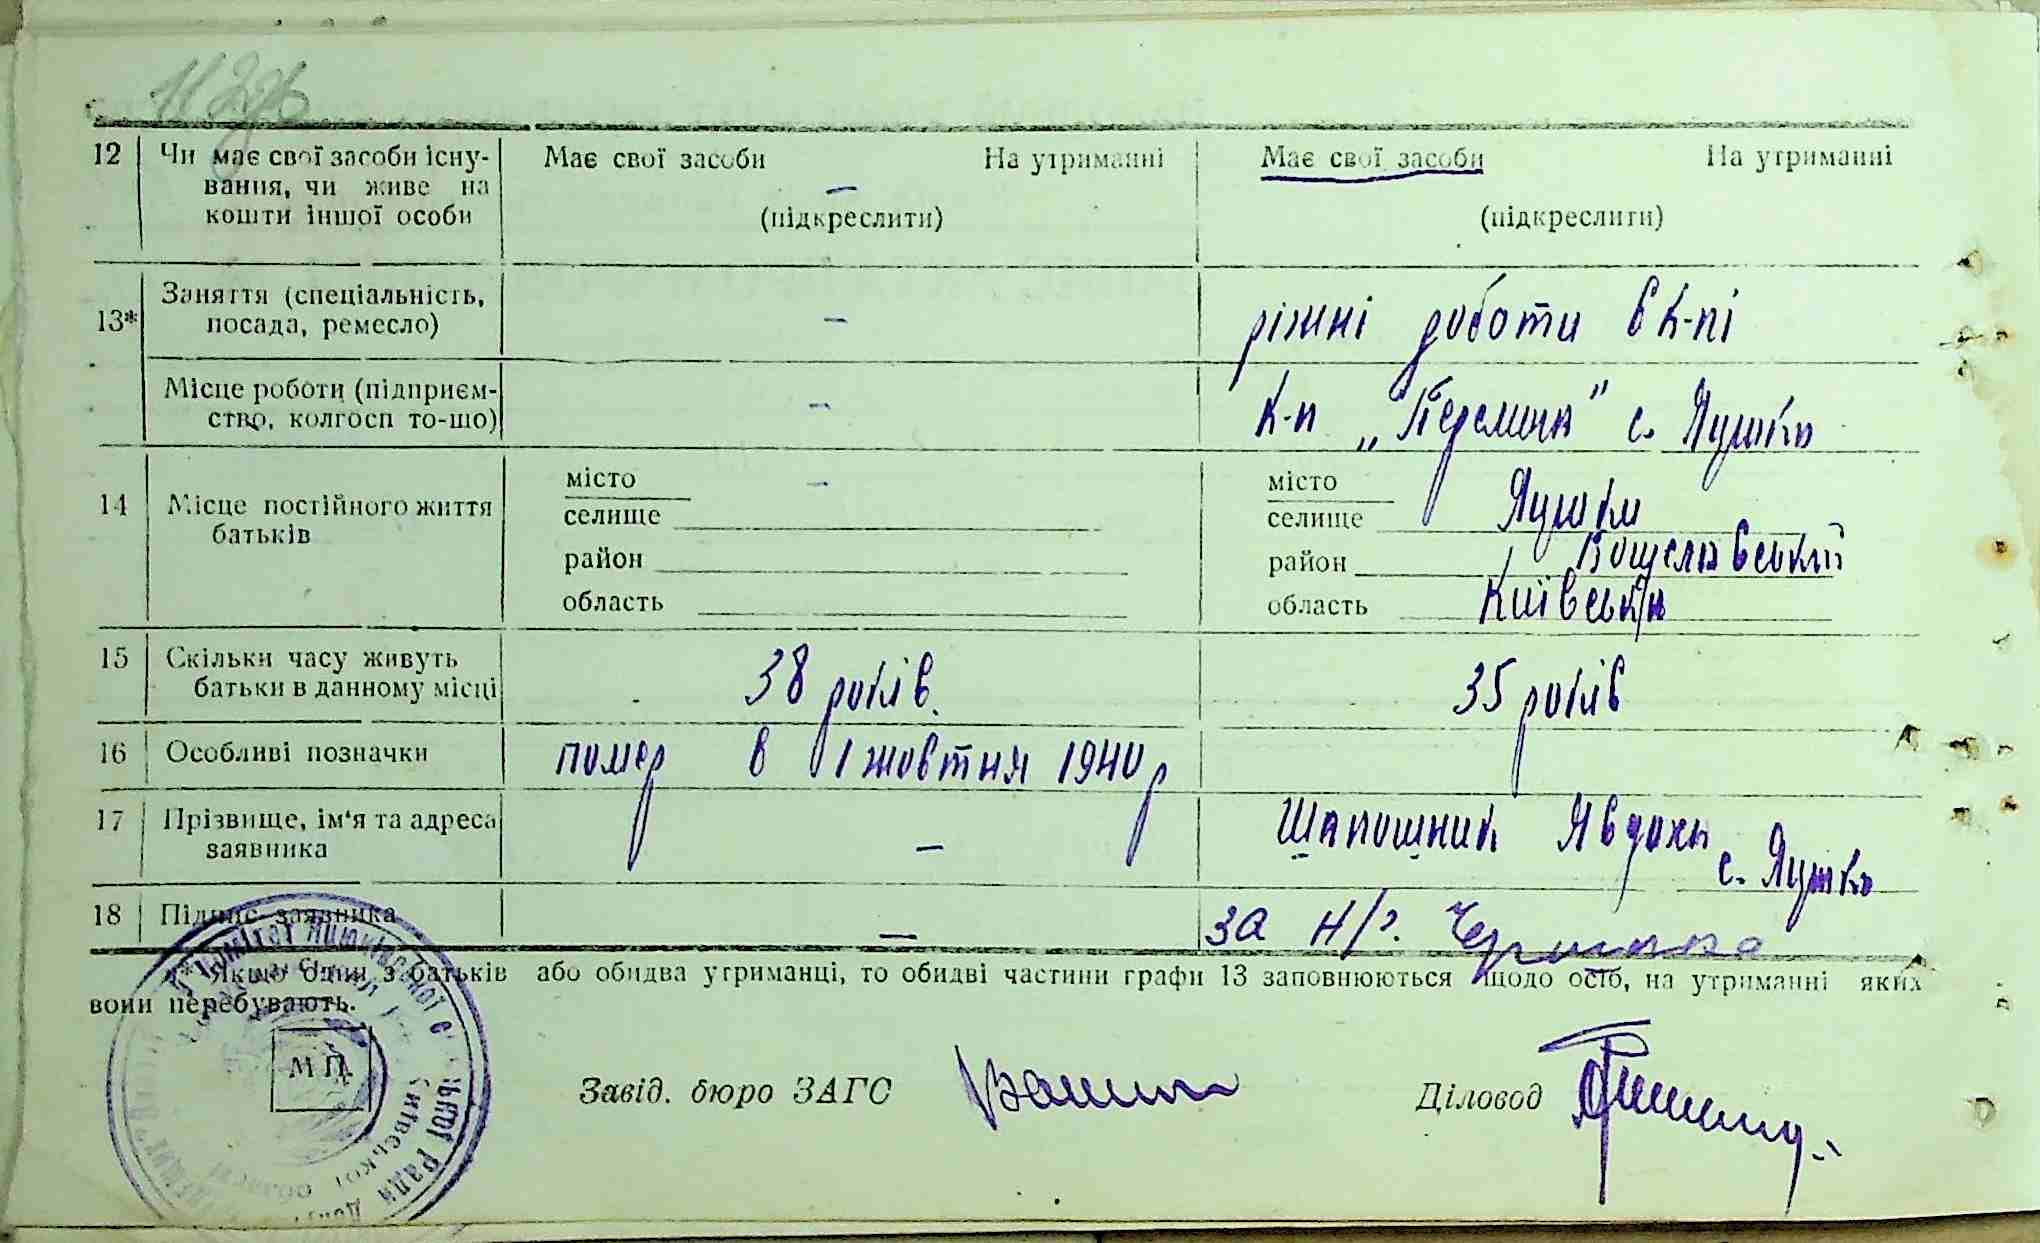 12 Чи має свої засоби існу-
вання, чи живе на
кошти іншої особи
Має свої засоби На утриманні
—
(підкреслити)
Має свої засоби На утриманні
(підкреслити)
13* Заняття (спеціальність,
посада, ремесло)
—
ріжні роботи в к-пі
Місце роботи (підприєм-
ство, колгосп то-що)
—
к-п „Перемога" с. Яцюки
14 Місце постійного життя
батьків
місто —
селище
район
область
місто
селище
район
область Київська
15 Скільки часу живуть
батьки в данному місці
38 років.
35 років
16 Особливі позначки
помер в 1 жовтня 1940 р
17 Прізвище, ім'я та адреса
заявника
—
Шапошник Явдоха
с.
18 Підпис заявника
—
за н/г.
*Якщо один з батьків або обидва утриманці, то обидві частини графи 13 заповнюються щодо осіб, на утриманні яких
вони перебувають.
М П.
Завід. бюро ЗАГС
Діловод
Київської області